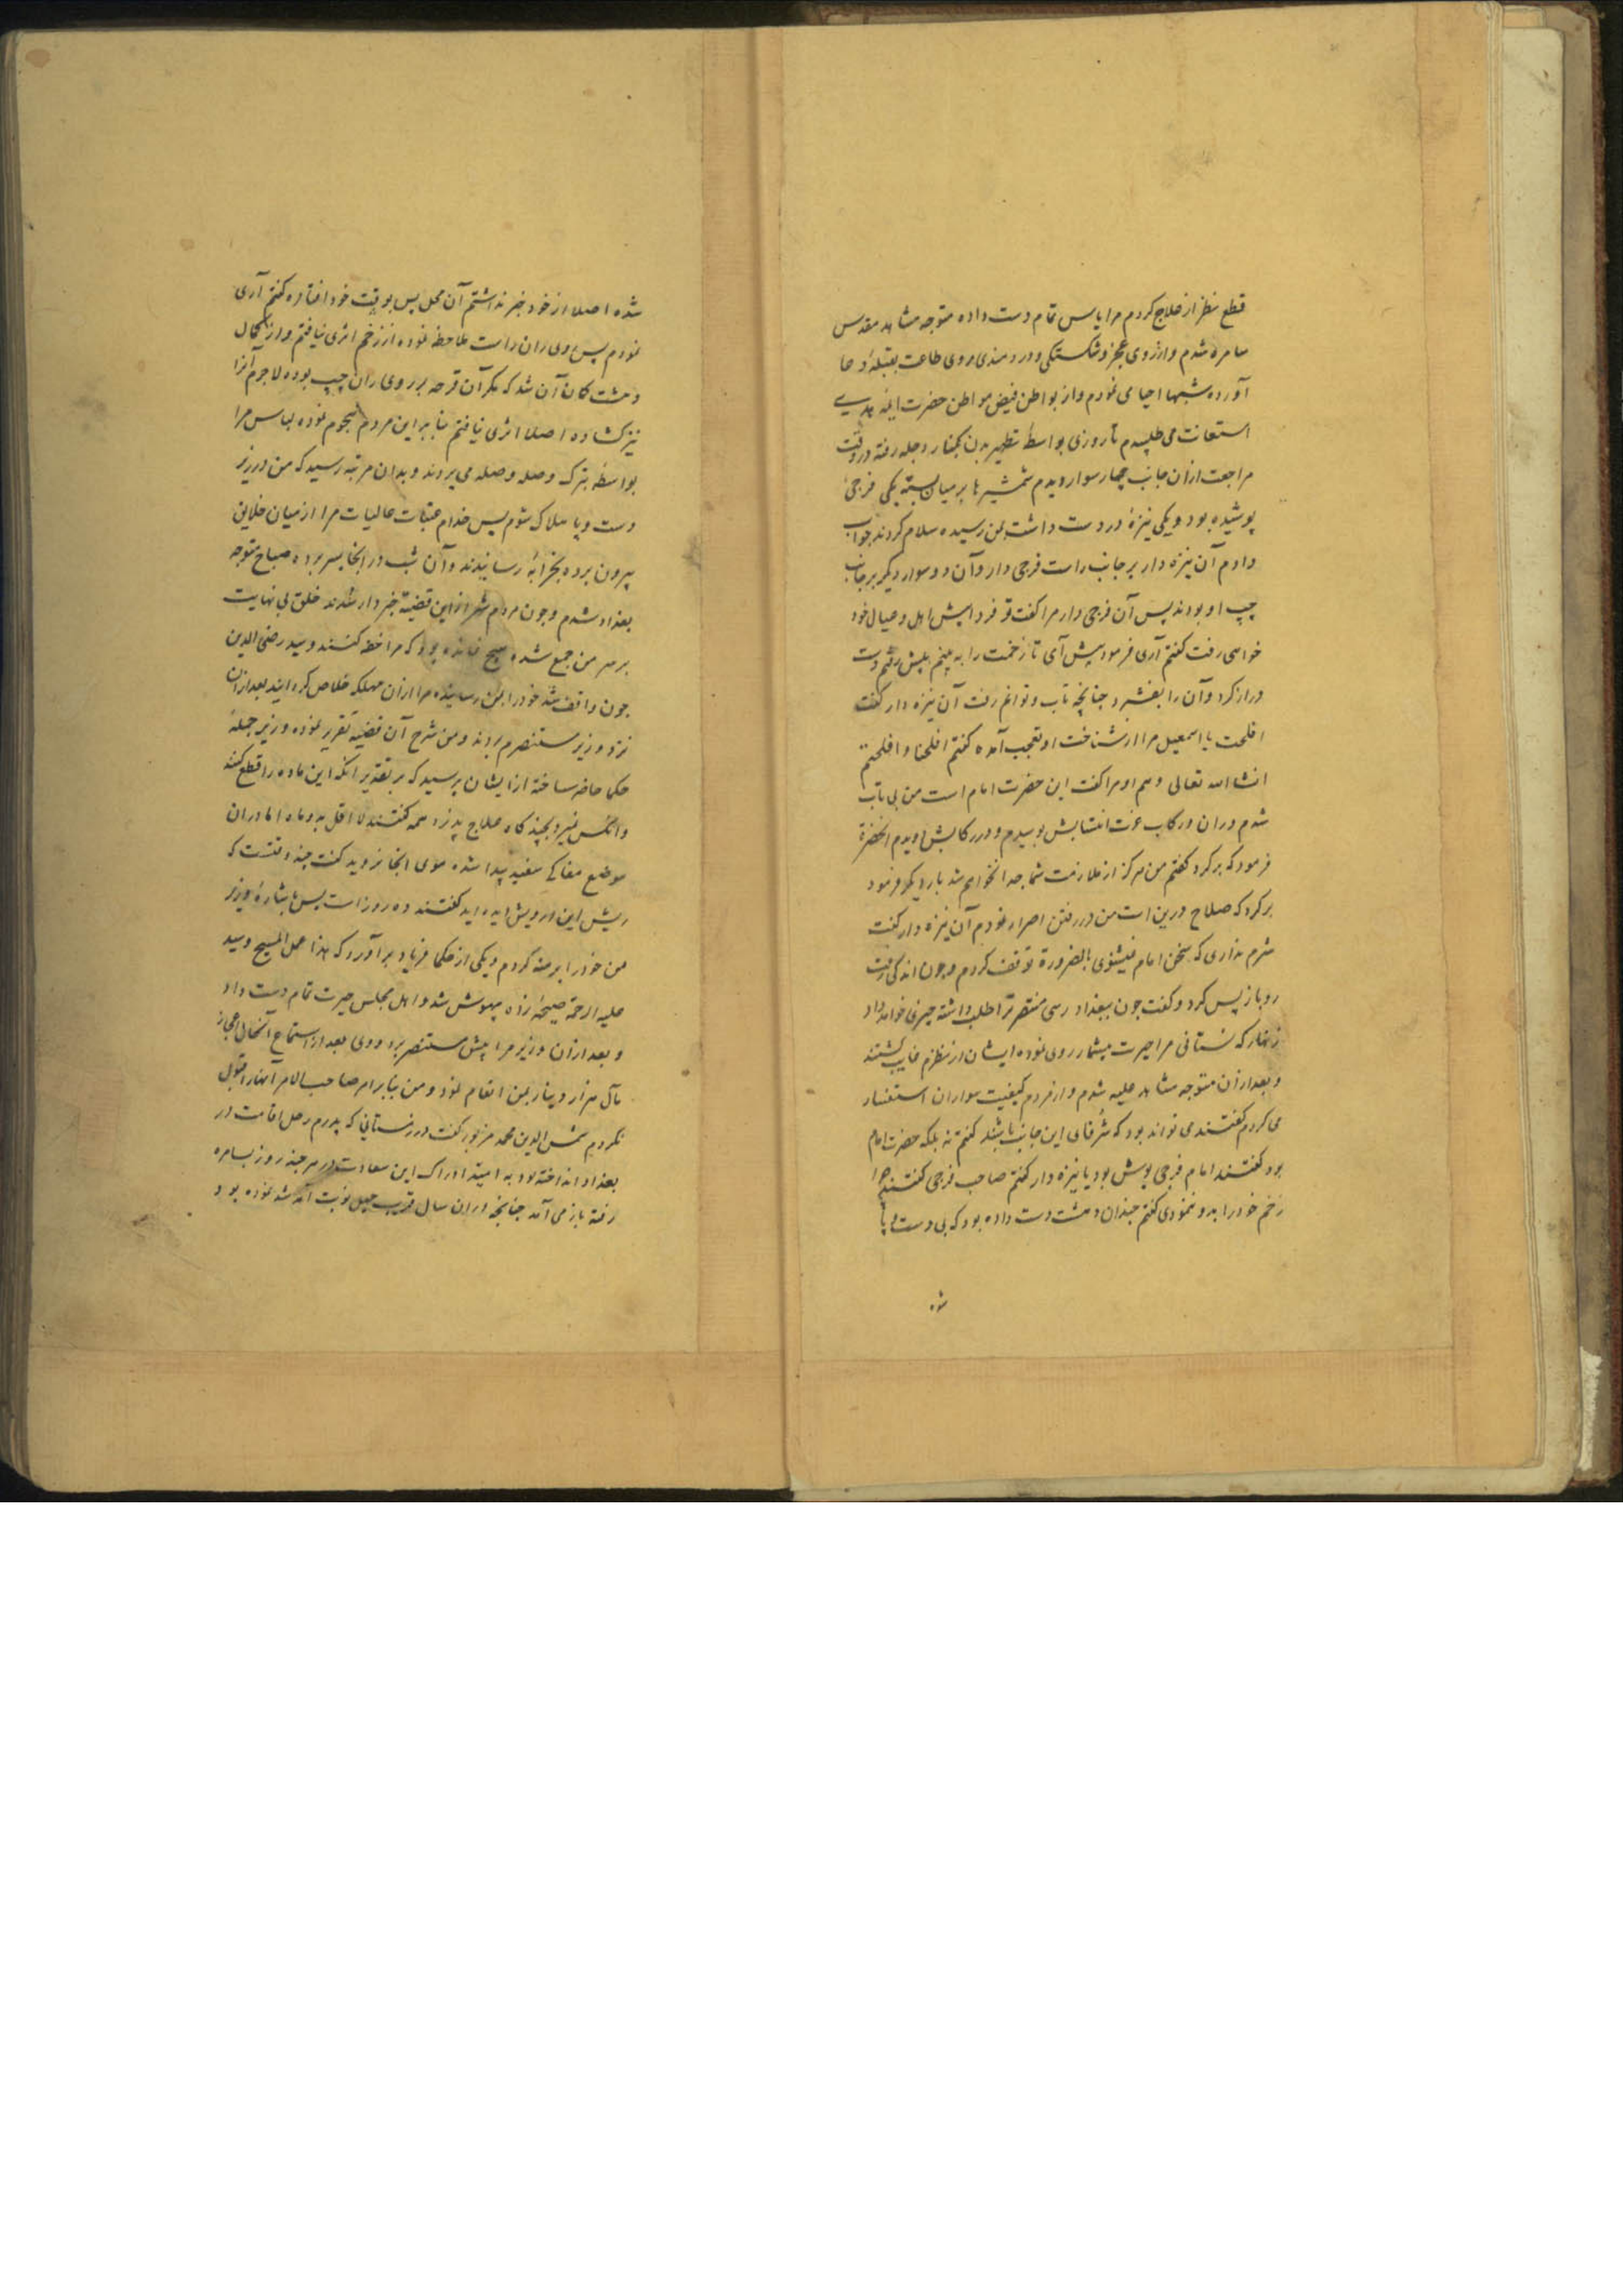 قطع نظر از علاج کردم مرا یاس تمام دست داده متوجه مشاهد مقدس
سامره شدم و از روی عجز و شکستگی و دردمندی روی طاعت بقبلهٔ دعا
آورده شبها احیا می نمودم و از بواطن فیض مواطن حضرت ایمه هدی
استعانت می طلبیدم تا روزی بواسطهٔ تطهیر بدن بکنار دجله رفته در وقت
مراجعت از ان جانب چهار سوار دیدم شمشیرها بر میان بسته یکی فرجی
پوشیده بود و یکی نیزهٔ در دست داشت بمن رسیده سلام کردند جواب
دادم آن نیزه دار بر جانب راست فرجی دار و آن دو سوار دیگر بر جانب
چپ او بودند پس آن فرجی دار مرا گفت تو فردا پیش اهل و عیال خود
خواهی رفت گفتم آری فرمود پیش آی تا زخمت را به بینم پیش رفتم دست
دراز کرد و آن را بفشرد چنانچه تاب و توانم رفت آن نیزه دار گفت
افلحت یا اسمعیل مرا از شناخت او تعجب آمده گفتم افلحنا و افلحتم
انشا الله تعالی و هم او مرا گفت این حضرت امام است من بی تاب
شدم و ران و رکاب عزت انتسابش بوسیدم و در رکابش دویدم آنحضرة
فرمود که برگرد گفتم من هرگز از ملازمت شما جدا نخواهم شد بار دیگر فرمود
برگرد که صلاح درین است من در رفتن اصرار نمودم آن نیزه دار گفت
شرم نداری که سخن امام نمیشنوی بالضرورة توقف کردم و چون اندکی رفت
رو باز پس کرد و گفت چون ببغداد رسی منتصر ترا طلب داشته چیزی خواهد داد
زنهار که نستانی مرا حیرت بیشمار روی نموده ایشان از نظرم غایب گشتند
و بعد از ان متوجه مشاهد علیه شدم و از مردم کیفیت سواران استفسار
می کردم گفتند می تواند بود که شرفای این جانب باشند گفتم نه بلکه حضرت امام
بود گفتند امام فرجی پوش بود یا نیزه دار گفتم صاحب فرجی گفتند چرا
زخم خود را بدو ننمودی گفتم چندان دهشت دست داده بود که بی دست و پا
شده
شده اصلا از خود خبر نداشتم آن محل پس بوقت خود افتاده گفتم آری
نمودم پس روی ران راست ملاحظه نموده از زخم اثری نیافتم و از کمال
دهشت گمان آن شد که مگر آن قرحه بر روی ران چپ بوده لاجرم آنرا
نیز گشاده اصلا اثری نیافتم بنابر این مردم هجوم نموده لباس مرا
بواسطهٔ تبرک وصله وصله می بردند و بدان مرتبه رسید که من در زیر
دست و پا هلاک شوم پس خدام عتبات عالیات مرا از میان خلایق
بیرون برده بخزانه رسانیدند و آن شب در آنجا بسر برده صباح متوجه
بغداد شدم و چون مردم شهر از این قضیه خبردار شدند خلق بی نهایت
بر سر من جمع شده هیچ نمانده بود که مرا خفه کنند و سید رضی الدین
چون واقف شد خود را بمن رسانیده مرا از ان مهلکه خلاص کردانید بعد از ان
نزد وزیر مستنصرم بردند و من شرح آن قضیه تقریر نموده وزیر جمله
حکما حاضر ساخته از ایشان پرسید که بر تقدیر آنکه این ماده را قطع کنند
و آنکس نمیرد بچند گاه علاج پذیرد همه گفتند لا اقل بدو ماه اما در ان
موضع مغاکی سفید پیدا شده موی آنجا نروید گفت چند وقتست که
ریش این درویش دیده اید گفتند ده روز است پس باشارهٔ وزیر
من خود را برهنه کردم و یکی از حکما فریاد برآورد که هذا عمل المسیح و سید
علیه الرحمة صیحهٔ زده بیهوش شد و اهل مجلس حیرت تمام دست داد
و بعد از ان وزیر مرا پیش مستنصر برد و وی بعد از استماع آنحال اعجاز
مآل هزار دینار بمن انعام نمود و من بنابر امر صاحب الامر آنها را قبول
نکردم شمس الدین محمد مزبور گفت در زمستانی که پدرم رحل اقامت در
بغداد انداخته بود به امید ادراک این سعادت در هر چند روز بسامره
رفته باز می آمد چنانچه در ان سال قریب چهل نوبت آمد شد نموده بود